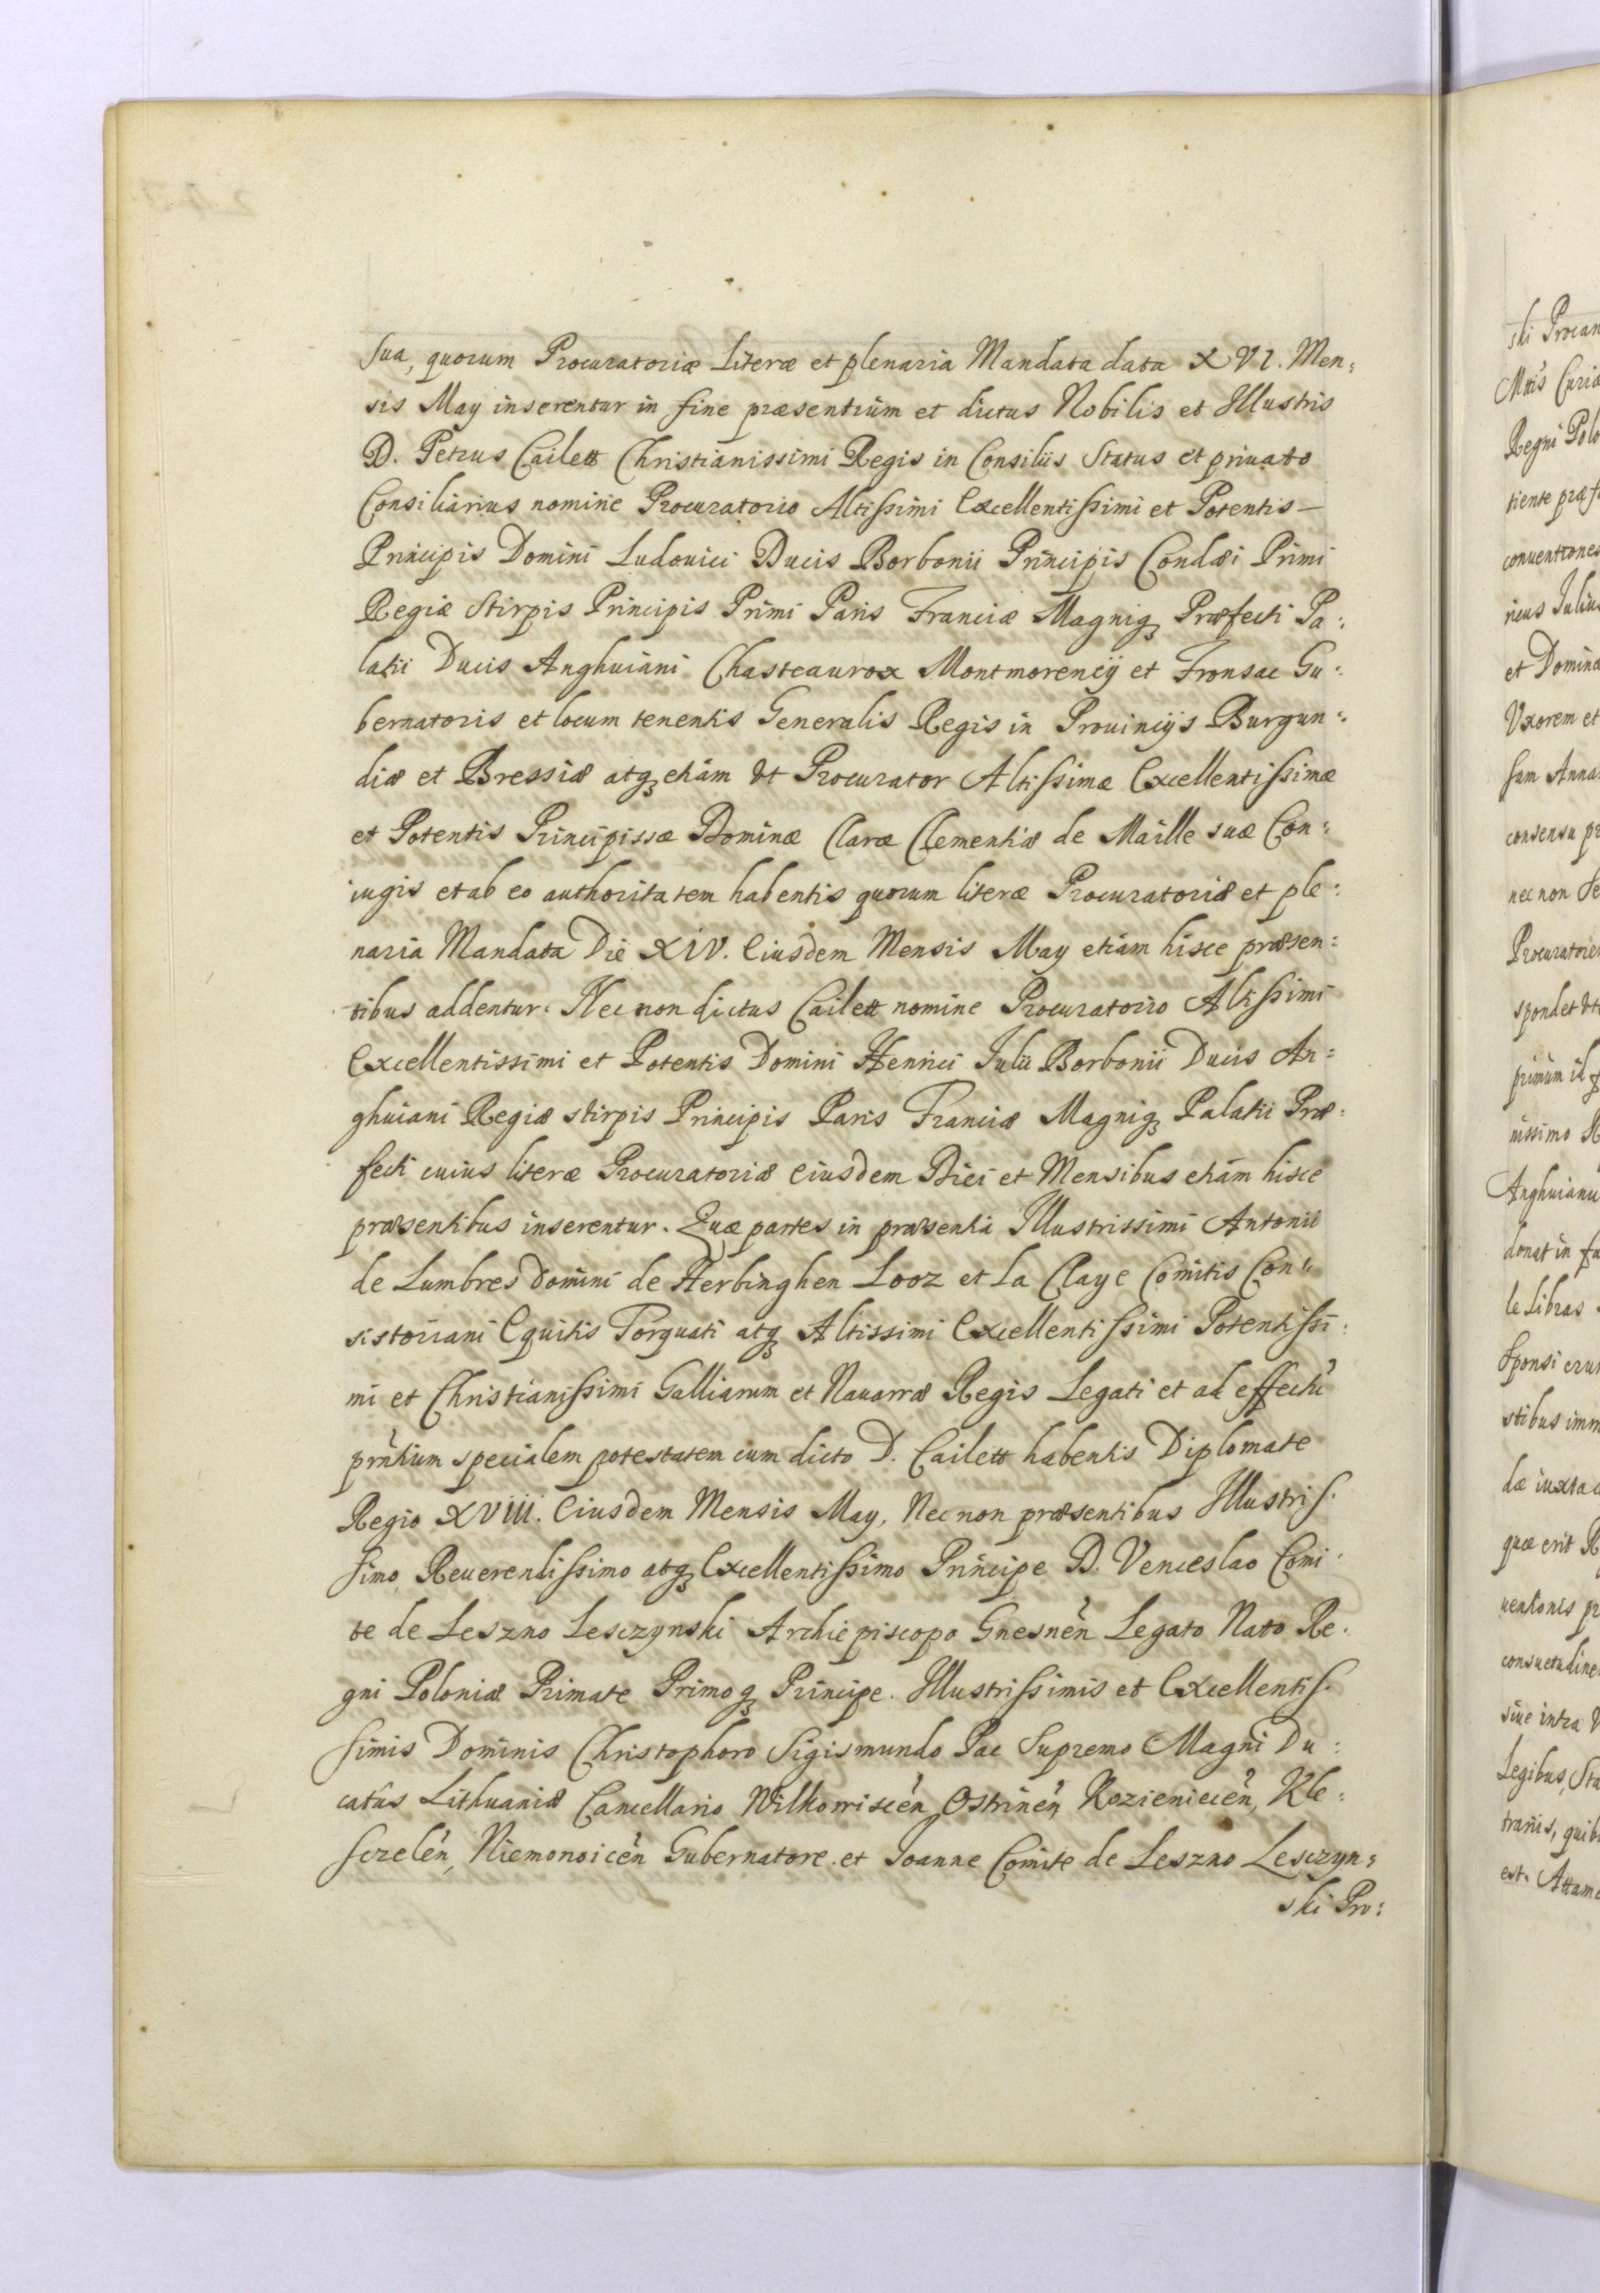 sua, quorum Procuratoriæ Literæ et plenaria Mandata data XVI. Men:
sis May inserentur in fine præsentium et dictus Nobilis et Illustris
D. Petrus Cailett Christianissimi Regis in Consiliis Status et priuato
Consiliarius nomine Procuratorio Altissimi Excellentissimi et Potentis
Principis Domini Ludouici Ducis Borbonii Principis Condæi Primi
Regiæ Stirpis Principis Primi Paris Franciæ Magniq Præfecti Pa:
latii Ducis Anghuiani Chasteaurox Montmorencÿ et Fronsac Gu:
bernatoris et locum tenentis Generalis Regis in Prouincÿs Burgun:
diæ et Bressiæ atq etiam Vt Procurator Altissimæ Excellentissimæ
et Potentis Principissæ Dominæ Claræ Clementiæ de Maille suæ Con:
iugis et ab eo authoritatem habentis quorum literæ Procuratoriæ et ple:
naria Mandata Die XIV. Eiusdem Mensis May etiam hisce præsen:
tibus addentur. Nec non dictus Cailett nomine Procuratorio Altissimi
Excellentissimi et Potentis Domini Henrici Iulii Borbonii Ducis An:
ghuiani Regiæ stirpis Principis Paris Franciæ Magniq Palatii Præ:
fecti cuius literæ Procuratoriæ eiusdem Diei et Mensibus etiam hisce
præsentibus inserentur. Quæ partes in præsentia Illustrissimi Antonii
de Lumbres Domini de Herbinghen Looz et La Claye Comitis Con:
sistoriani Equitis Torquati atq Altissimi Excellentissimi Potentissi:
mi et Christianissimi Galliarum et Nauarræ Regis Legati et ad effectũ
prñtium specialem potestatem cum dicto D. Cailett habentis Diplomate
Regio XVIII. Eiusdem Mensis May, Nec non præsentibus Illustris:
simo Reuerendissimo atq Excellentissimo Principe D. Venceslao Comi:
te de Leszno Lesczynski Archiepiscopo Gnesnẽn Legato Nato Re:
gni Poloniæ Primate Primoq Principe. Illustrissimis et Excellentis:
simis Dominis Christophoro Sigismundo Pac Supremo Magni Du:
catus Lithuaniæ Cancellario Wilkowiscẽn, Ostrinẽn, Kozieniecẽn, Kle:
sczelẽn, Niemonoicẽn Gubernatore. et Joanne Comite de Leszno Lesczyn:
ski Pro:
ski Procan
Mttis Curiæ
Regni Polo
tiente præf
conuentiones
ricus Julius
et Domina
Vxorem et
sam Anna
consensu pr
nec non Se
Procuratore
spondet Vt
primùm id
nissimo R
Anghuianu
donat in fa
le Libras
Sponsi eru
stibus imm
dæ iuxta
quæ erit R
uentionis pr
consuetudine
siue intra V
Legibus, Sta
trariis, quib
est. Attame